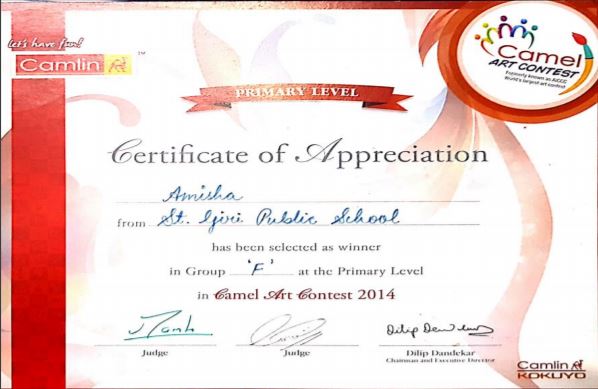 let's have fun!
Camlin
TM
Camel
ART CONTEST
Formerly known as AICCC
World's largest art contest
PRIMARY LEVEL
Certificate of Appreciation
Amisha
from St. Giri Public School
has been selected as winner
in Group 'F' at the Primary Level
in Camel Art Contest 2014
Dilip Dandekar
Judge
Judge
Dilip Dandekar
Chairman and Executive Director
Camlin
KOKUYO